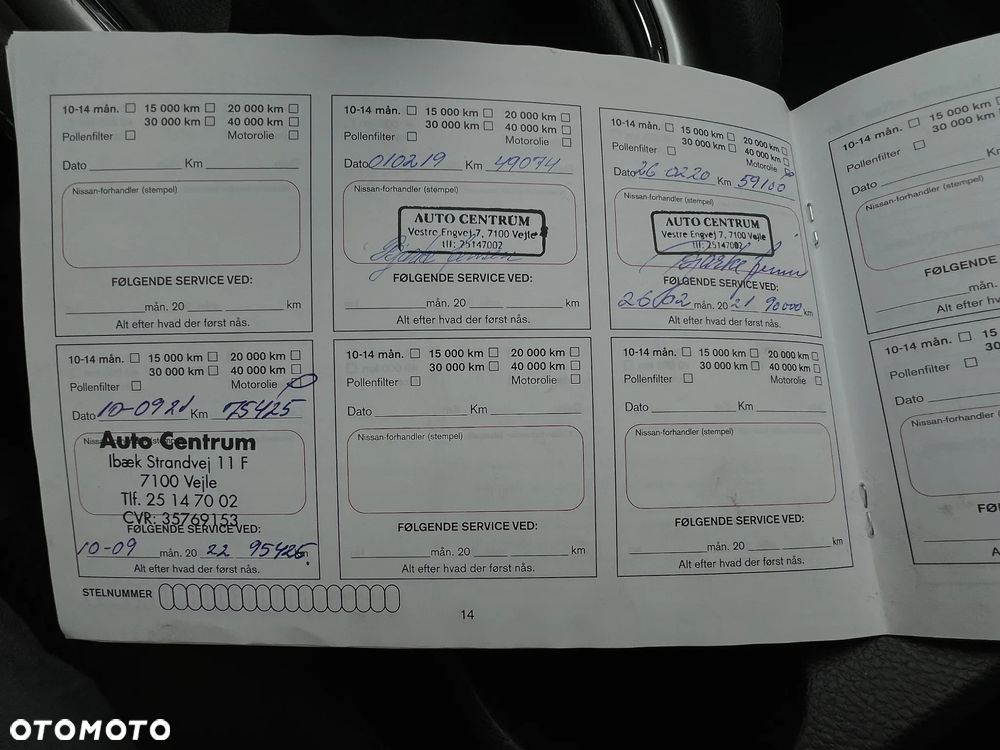 10-14 mån. 15 000 km 20 000 km
30 000 km 40 000 km
Pollenfilter Motorolie
Dato Km
Nissan-forhandler (stempel)
FØLGENDE SERVICE VED:
mån. 20 km
Alt efter hvad der først nås.
10-14 mån. 15 000 km 20 000 km
30 000 km 40 000 km
Pollenfilter Motorolie
Dato 010219 Km 49074
Nissan-forhandler (stempel)
AUTO CENTRUM
Vestre Engvej 7, 7100 Vejle
tlf: 25147002
FØLGENDE SERVICE VED:
mån. 20 km
Alt efter hvad der først nås.
10-14 mån. 15 000 km 20 000 km
30 000 km 40 000 km
Pollenfilter Motorolie
Dato 26 0220 Km 59100
Nissan-forhandler (stempel)
AUTO CENTRUM
Vestre Engvej 7, 7100 Vejle
tlf: 25147002
FØLGENDE SERVICE VED:
26/02 mån. 20 21 90000 km
Alt efter hvad der først nås.
10-14 mån. 15 000 km
30 000 km
Pollenfilter
Dato Km
Nissan-forhandler (stempel)
FØLGENDE
mån.
Alt efter hvad
10-14 mån. 15 000 km 20 000 km
30 000 km 40 000 km
Pollenfilter Motorolie
Dato 10-09 21 Km 75425
Auto Centrum
Ibæk Strandvej 11 F
7100 Vejle
Tlf. 25 14 70 02
CVR: 35769153
FØLGENDE SERVICE VED:
10-09 mån. 20 22 95425 km
Alt efter hvad der først nås.
10-14 mån. 15 000 km 20 000 km
30 000 km 40 000 km
Pollenfilter Motorolie
Dato Km
Nissan-forhandler (stempel)
FØLGENDE SERVICE VED:
mån. 20 km
Alt efter hvad der først nås.
10-14 mån. 15 000 km 20 000 km
30 000 km 40 000 km
Pollenfilter Motorolie
Dato Km
Nissan-forhandler (stempel)
FØLGENDE SERVICE VED:
mån. 20 km
Alt efter hvad der først nås.
10-14 mån. 15 000
30 000
Pollenfilter
Dato
Nissan-forhandler (stempel)
STELNUMMER
14
OTOMOTO